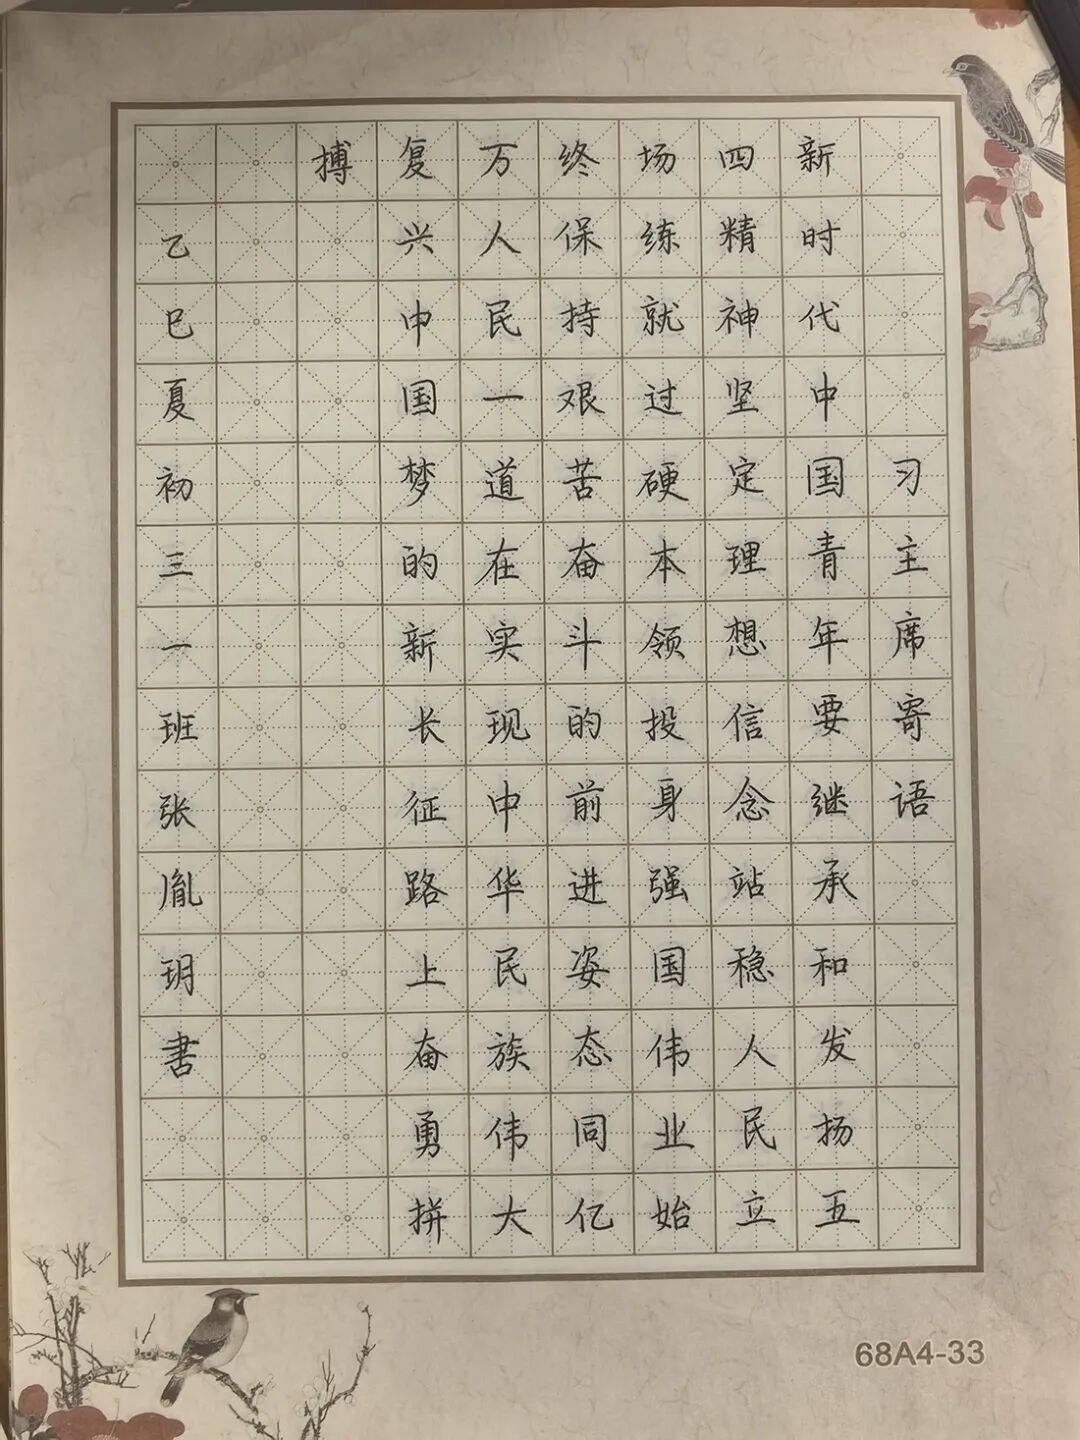 习主席寄语
新时代中国青年要继承和发扬五
四精神坚定理想信念站稳人民立
场练就过硬本领投身强国伟业始
终保持艰苦奋斗的前进姿态同亿
万人民一道在实现中华民族伟大
复兴中国梦的新长征路上奋勇拼
搏
乙巳夏初三一班张胤玥书
68A4-33